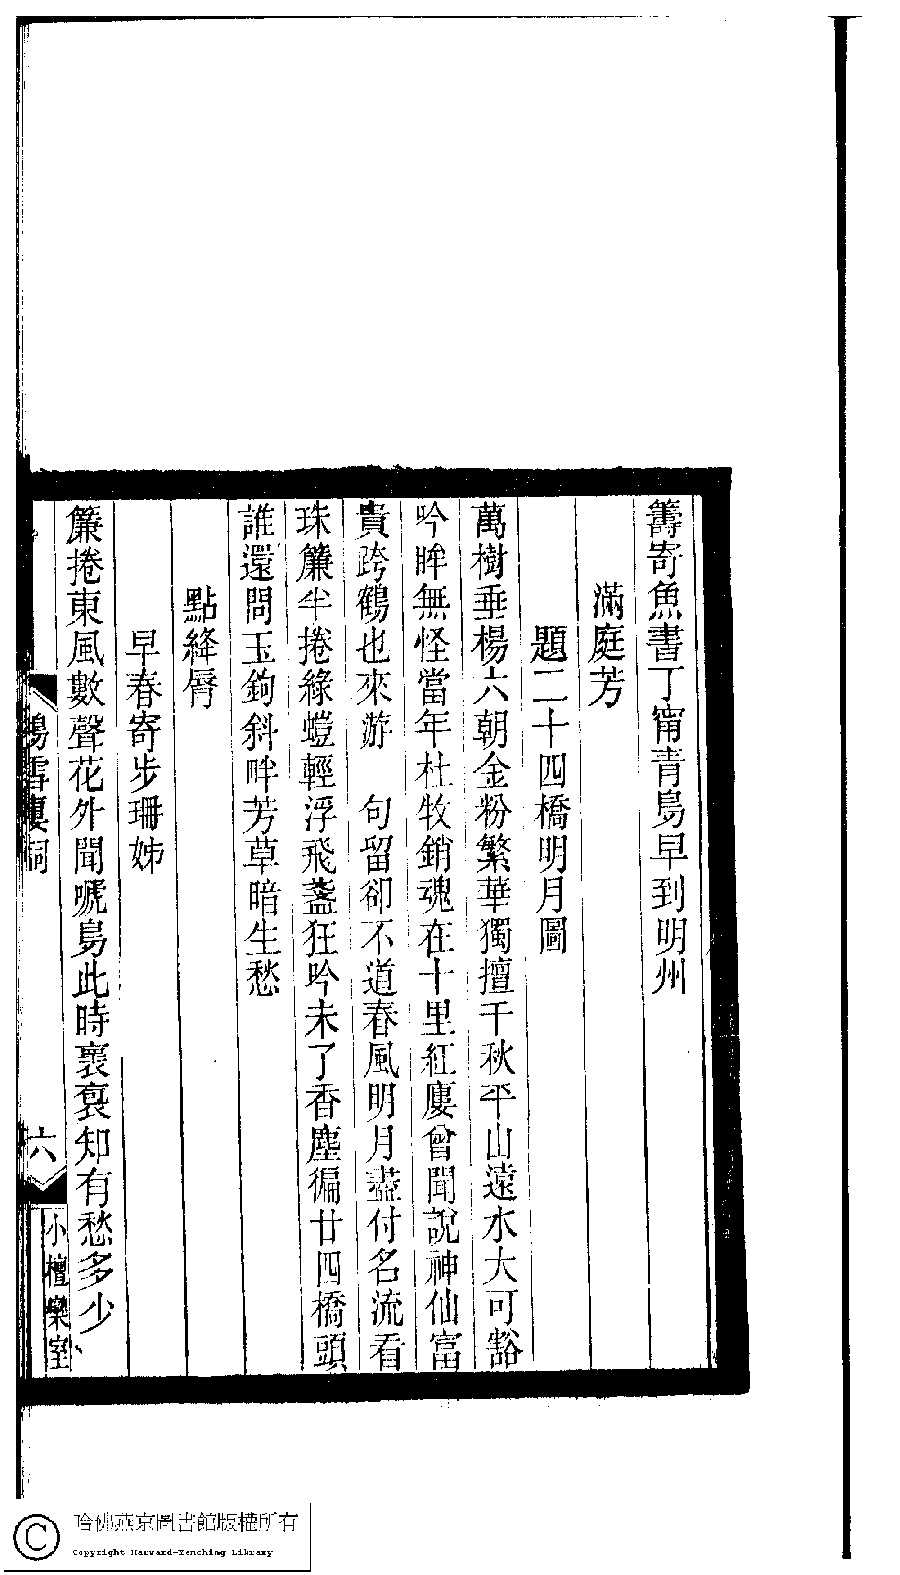 籌寄魚書丁甯青鳥早到明州
滿庭芳
題二十四橋明月圖
萬樹垂楊六朝金粉繁華獨擅千秋平山遠水大可豁
吟眸無怪當年杜牧銷魂在十里紅廔曾聞說神仙富
貴跨鶴也來游　句留卻不道春風明月盡付名流看
珠簾半捲綠螘輕浮飛盞狂吟未了香塵徧廿四橋頭
誰還問玉鉤斜畔芳草暗生愁
點絳脣
早春寄步珊姊
簾捲東風數聲花外聞嗁鳥此時裏裛知有愁多少
雪廔詞
六
小檀欒室
哈佛燕京圖書館版權所有
Copyright Harvard-Yenching Library